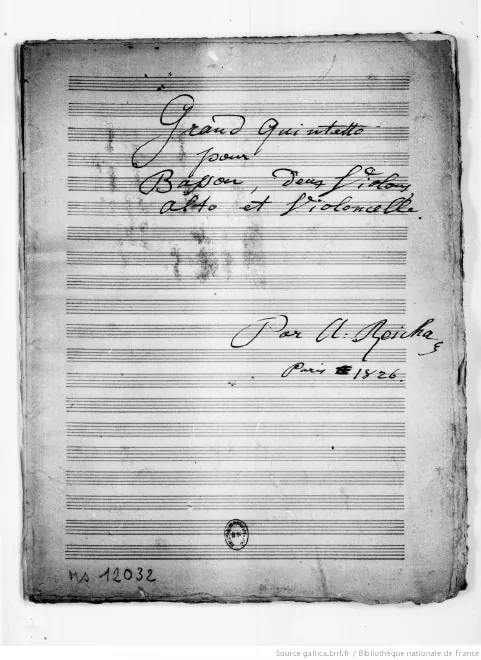 Grand Quintetto
pour
Basson, deux Violons,
alto et Violoncelle.
Par A: Reicha
Paris 1826.
Ms 12032
Source gallica.bnf.fr / Bibliothèque nationale de France